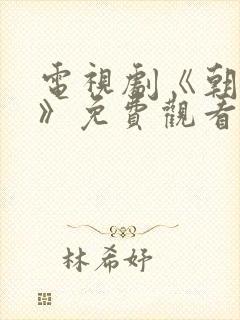 電視劇《朝
》免費觀看
林希妤